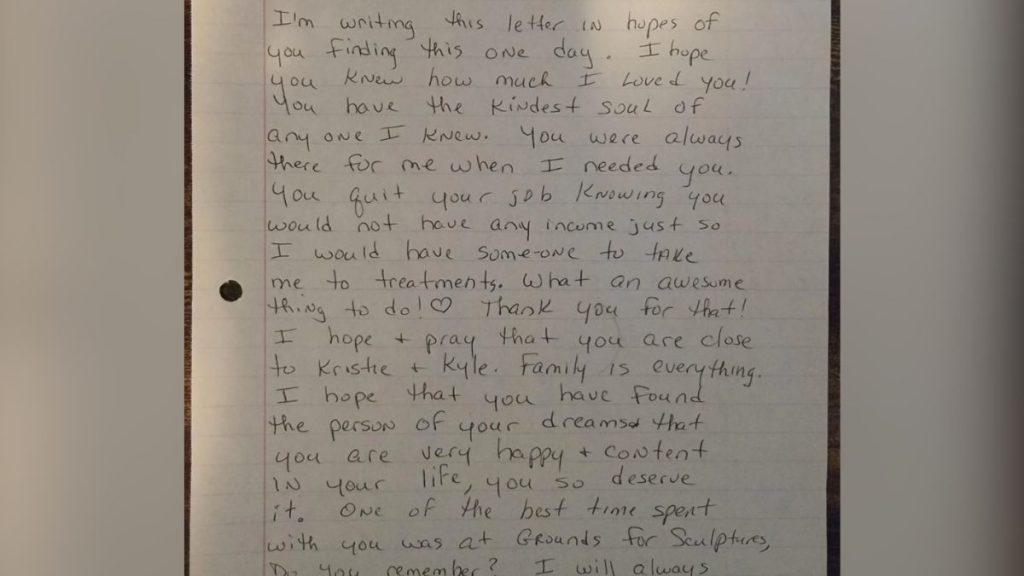 I'm writing this letter in hopes of
you finding this one day. I hope
you knew how much I loved you!
You have the kindest soul of
any one I knew. You were always
there for me when I needed you.
You quit your job knowing you
would not have any income just so
I would have some-one to take
me to treatments. What an awesome
thing to do! ♡ Thank you for that!
I hope + pray that you are close
to Kristie + Kyle. Family is everything.
I hope that you have found
the person of your dreams that
you are very happy + content
in your life, you so deserve
it. One of the best time spent
with you was at Grounds for Sculptures,
Do you remember? I will always